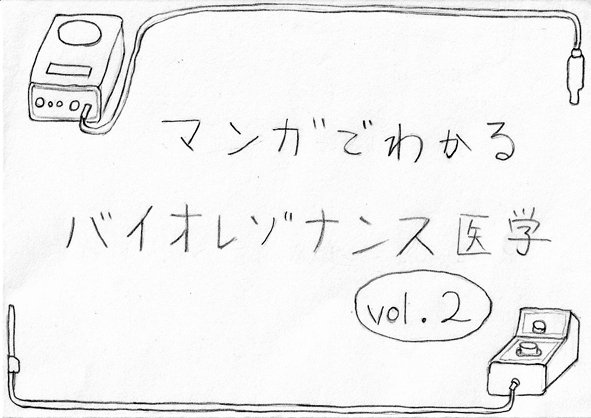 マンガでわかる
バイオレゾナンス医学
vol.2